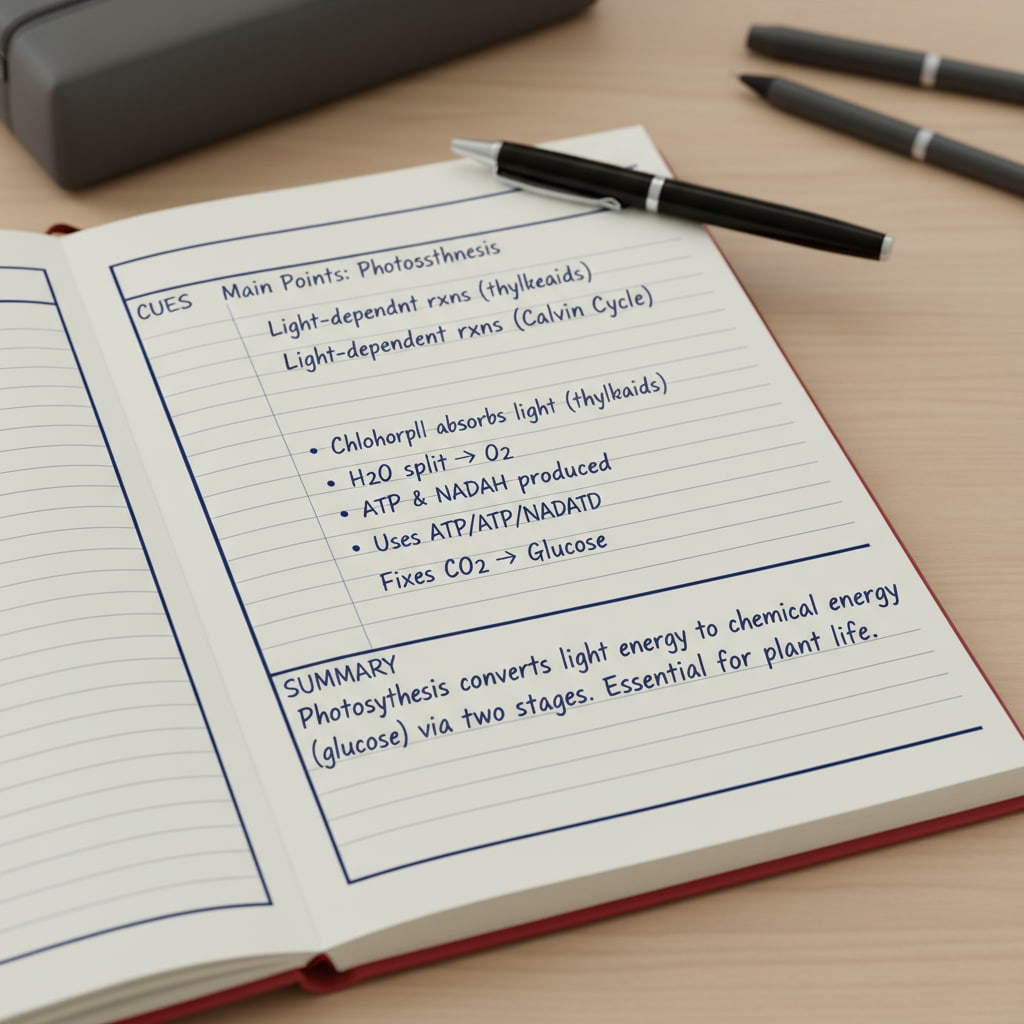 Main Points: Photossthnesis
CUES
Light-dependnt rxns (thylkeaids)
Light-dependent rxns (Calvin Cycle)
• Chlohorpll absorbs light (thylkaids)
• H2O split → O2
• ATP & NADAH produced
• Uses ATP/ATP/NADATD
Fixes CO2 → Glucose
SUMMARY
Photosythesis converts light energy to chemical energy
(glucose) via two stages. Essential for plant life.